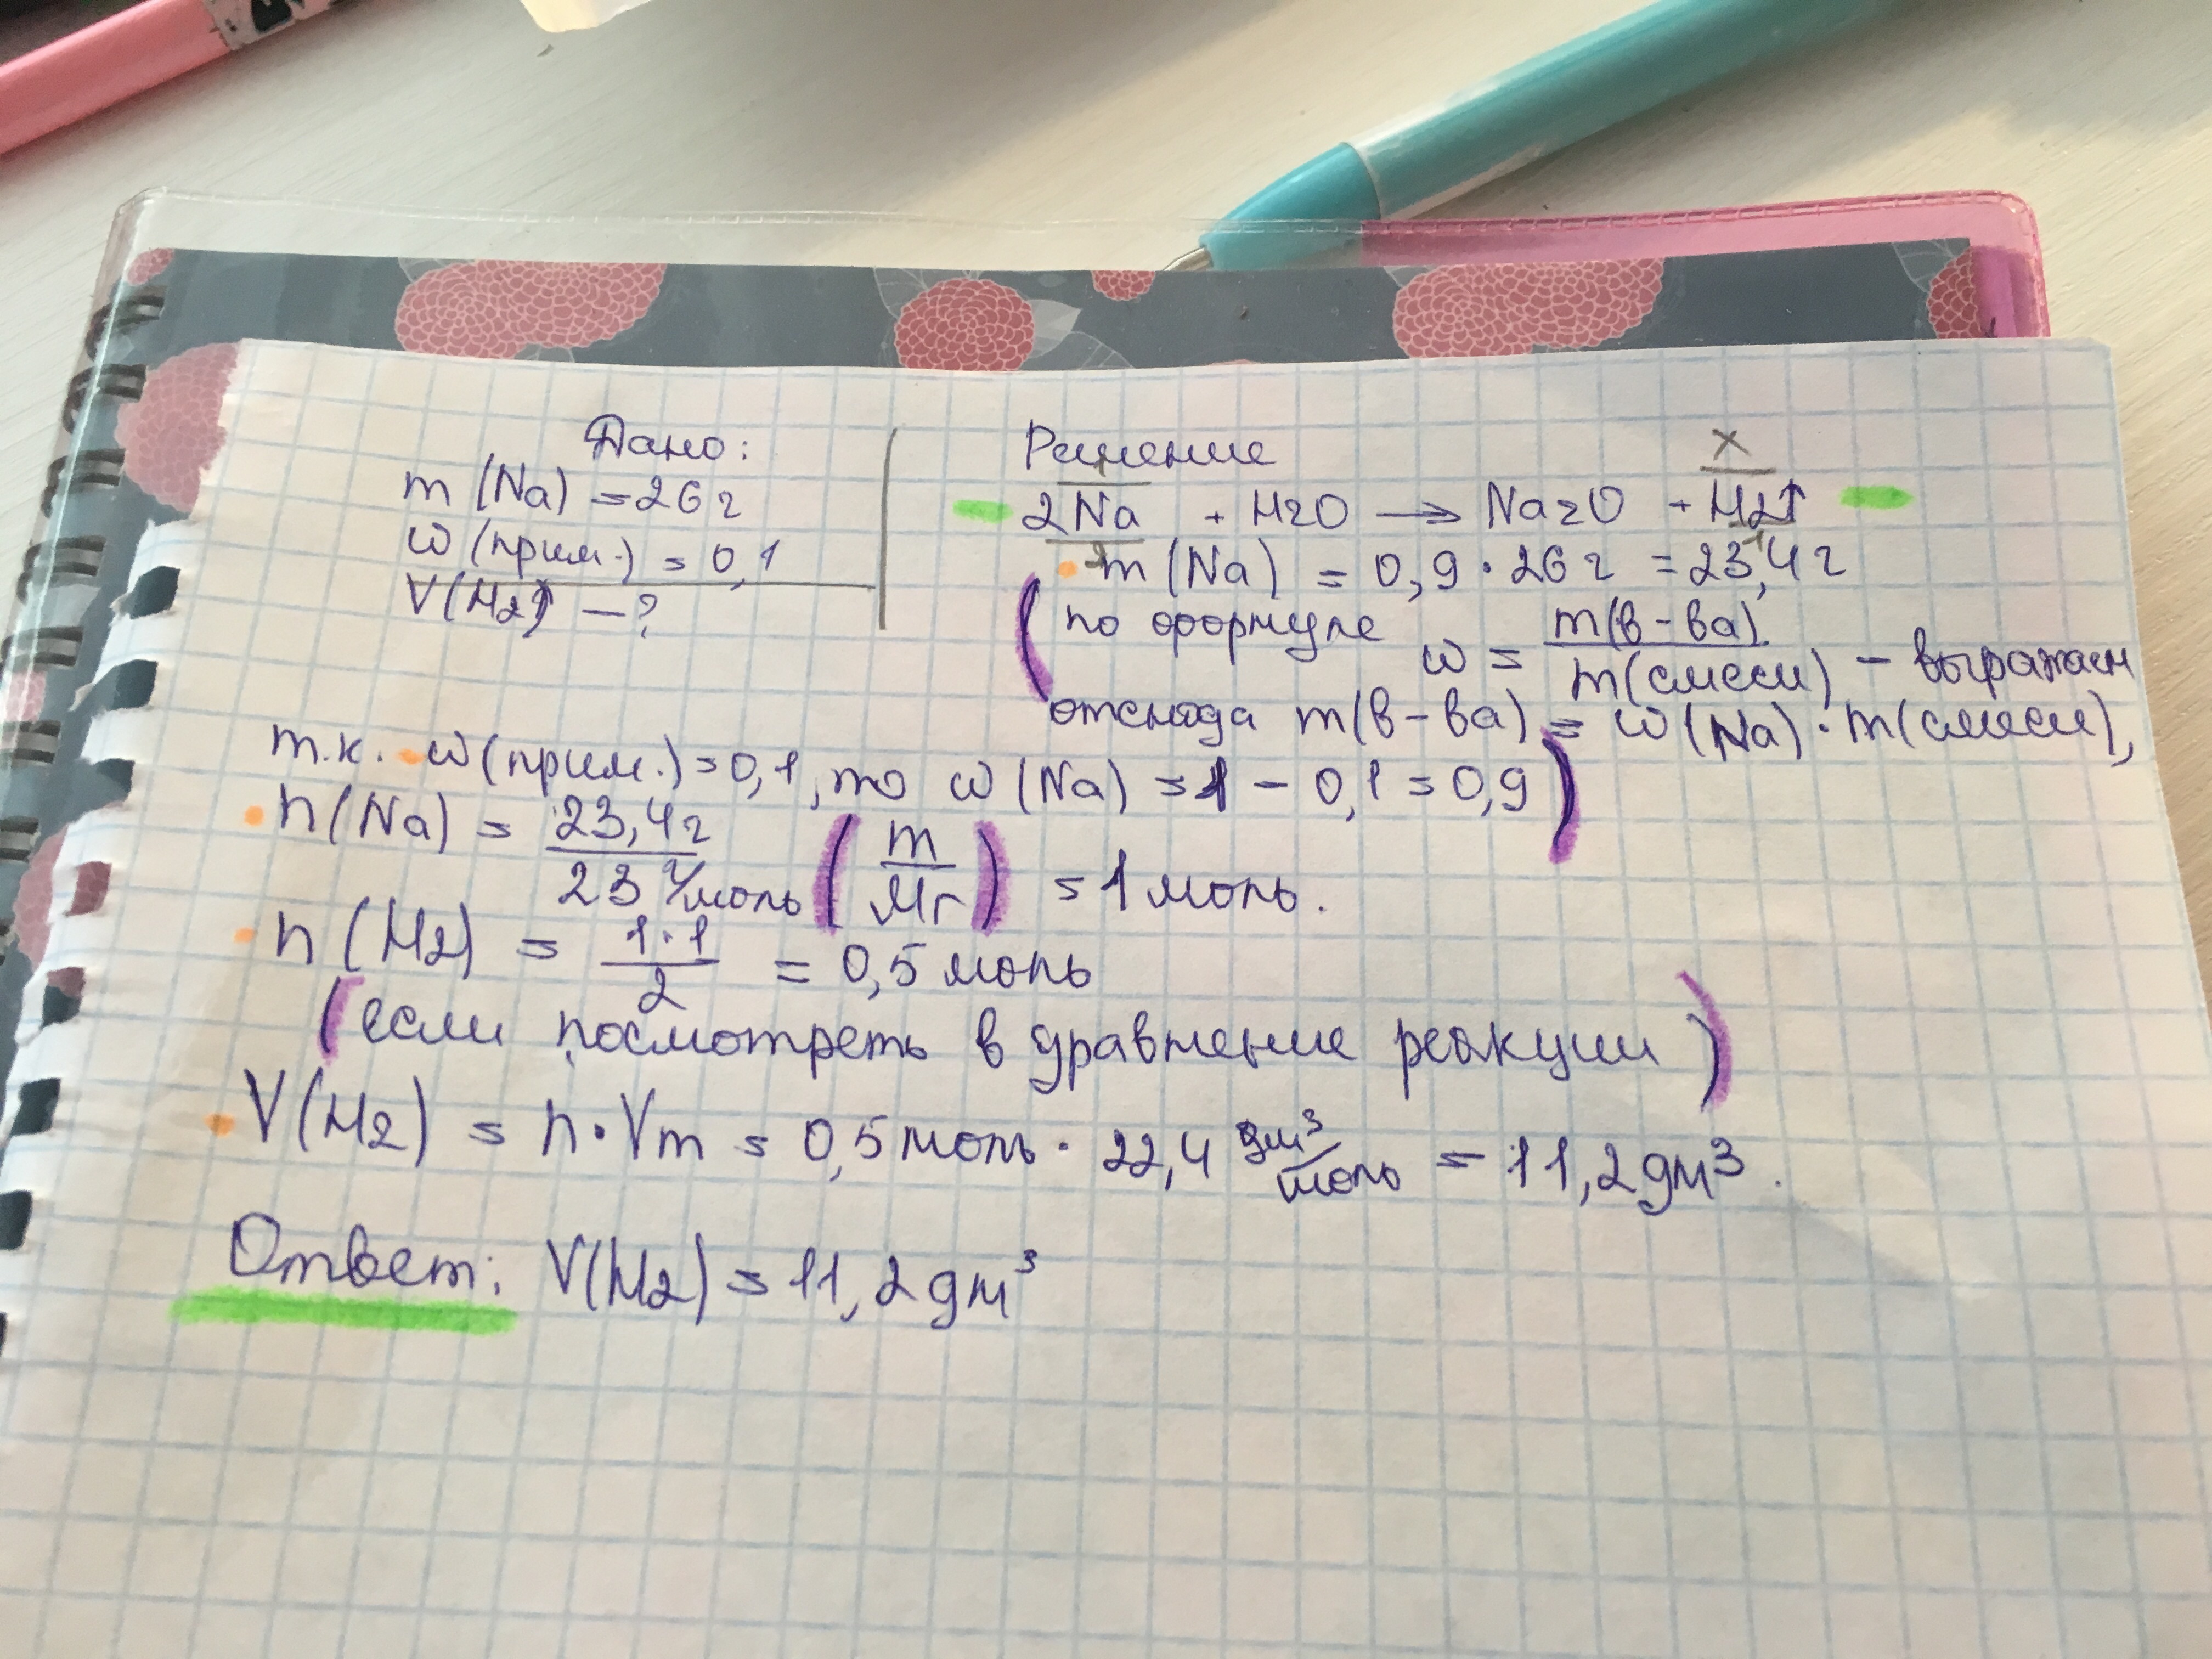 Дано:
m (Na) = 26 г
w (прим.) = 0,1
V(H2↑) — ?
Решение
x
2Na + H2O → Na2O + H2↑
m (Na) = 0,9 · 26 г = 23,4 г
(по формуле w = m(в-ва) / m(смеси) – выражаем
отсюда m(в-ва) = w (Na) · m(смеси),
т.к. w (прим.) = 0,1, то w (Na) = 1 – 0,1 = 0,9)
n (Na) = 23,4 г / 23 г/моль (m / Mr) = 1 моль.
n (H2) = 1·1 / 2 = 0,5 моль
(если посмотреть в уравнение реакции)
V(H2) = n · Vm = 0,5 моль · 22,4 дм³/моль = 11,2 дм³.
Ответ: V(H2) = 11,2 дм³